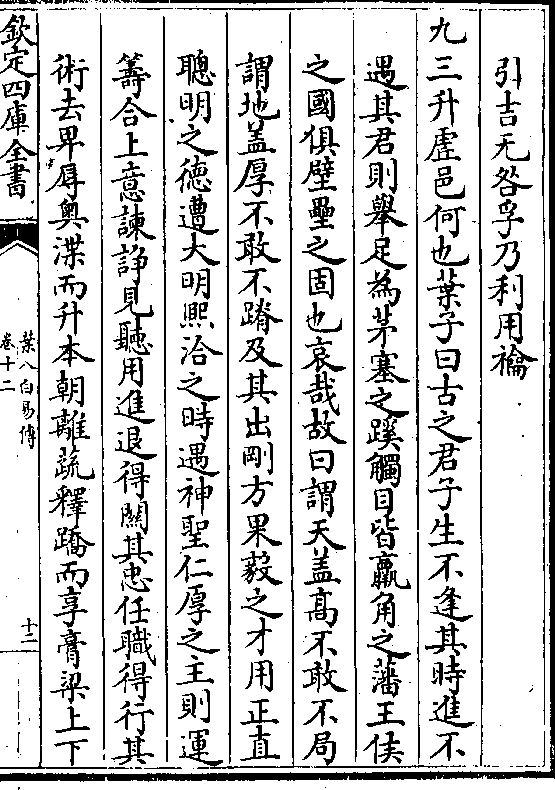 引吉无咎孚乃利用禴
九三升虛邑何也葉子曰古之君子生不逢其時進不
遇其君則舉足為茅塞之蹊觸目皆羸角之藩王侯
之國俱壁壘之固也哀哉故曰謂天盖髙不敢不局
謂地盖厚不敢不蹐及其出剛方果毅之才用正直
聰明之徳遭大明熙洽之時遇神聖仁厚之主則運
籌合上意諫諍見聽用進退得關其忠任職得行其
術去卑辱奥渫而升本朝離疏釋蹻而享膏粱上下
欽定四庫全書
葉八白易傳
卷十二
十二